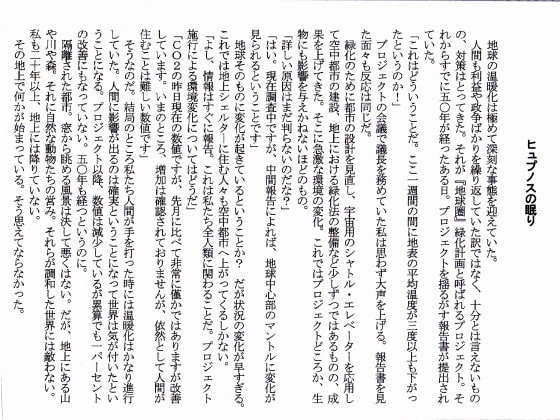 ヒュプノスの眠り
地球の温暖化は極めて深刻な事態を迎えていた。
人間も利益や政争ばかりを繰り返していた訳ではなく、十分とは言えないもの
の、対策はとってきた。それが『地球圏』緑化計画と呼ばれるプロジェクト。そ
れからすでに五〇年が経ったある日。プロジェクトを揺るがす報告書が提出され
ていた。
「これはどういうことだ。ここ一週間の間に地表の平均温度が三度以上も下がっ
たというのか！」
プロジェクトの会議で議長を務めていた私は思わず大声を上げる。報告書を見
た面々も反応は同じだ。
緑化のために都市の設計を見直し、宇宙用のシャトル・エレベーターを応用し
て空中都市の建設、地上における緑化法の整備など少しずつではあるものの、成
果を上げてきた。そこに急激な環境の変化。これではプロジェクトどころか、生
物にも影響を与えかねないほどのもの。
「詳しい原因はまだ判らないのだな？」
「はい、現在調査中ですが、中間報告によれば、地球中心部のマントルに変化が
見られるということです」
地球そのものに変化が起きているということか？　だが状況の変化が早すぎる。
これでは地上シェルターに住む人々も空中都市へ上がってくるしかない。
「よし、情報はすぐに報告。これは私たち全人類に関わることだ。プロジェクト
施行による環境変化についてはどうだ」
「ＣＯ２の昨日現在の数値ですが、先月に比べて非常に僅かではありますが改善
しています。いまのところ、増加は確認されておりませんが、依然として人間が
住むことは難しい数値です」
そうなのだ。結局のところ私たち人間が手を打った時には温暖化はかなり進行
していた。人間に影響が出るのは確実ということになって世界は気が付いたとい
うことになる。プロジェクト以降、数値は減少しているが累算でも一パーセント
の改善にもなっていない。五〇年も経つというのに。
隔離された都市。窓から眺める風景は決して悪くはない。だが、地上にある山
や川や森。それに自然な動物たちの営み。それらが調和した世界には敵わない。
私も二十年以上、地上には降りていない。
その地上で何かが始まっている。そう思えてならなかった。